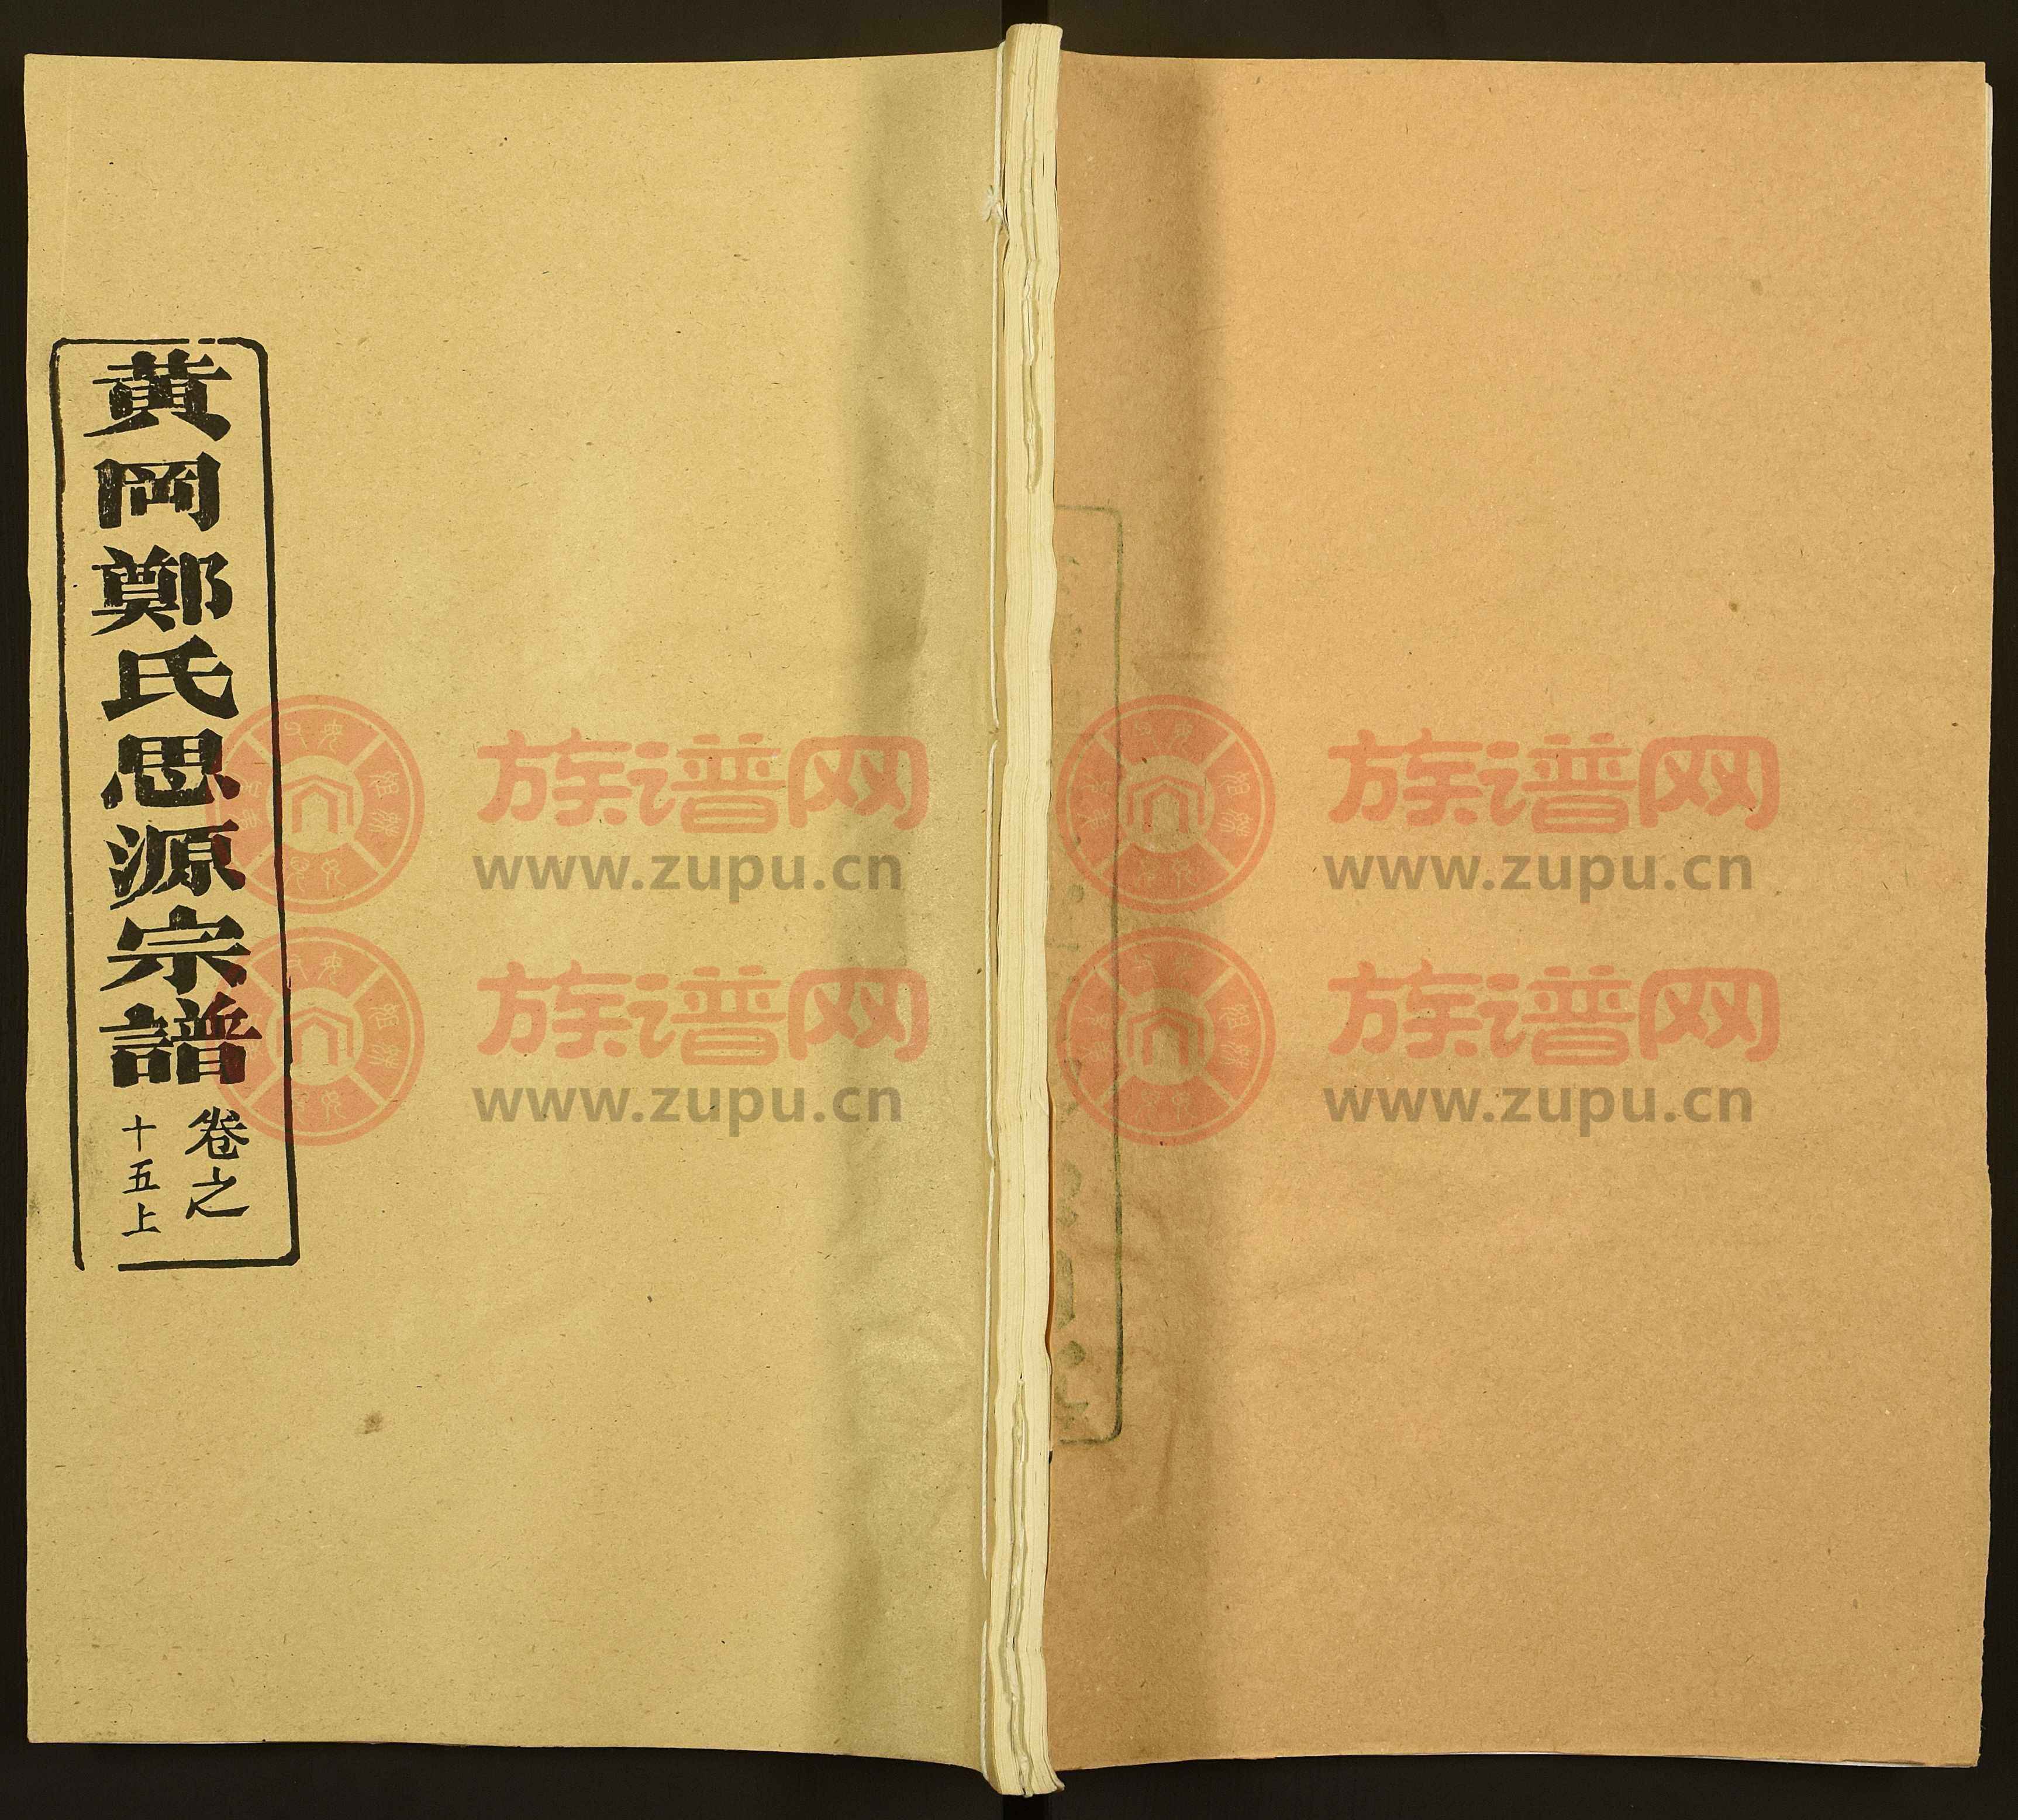 黄岡鄭氏思源宗譜
卷之
十五上
族谱网
www.zupu.cn
族谱网
www.zupu.cn
族谱网
www.zupu.cn
族谱网
www.zupu.cn